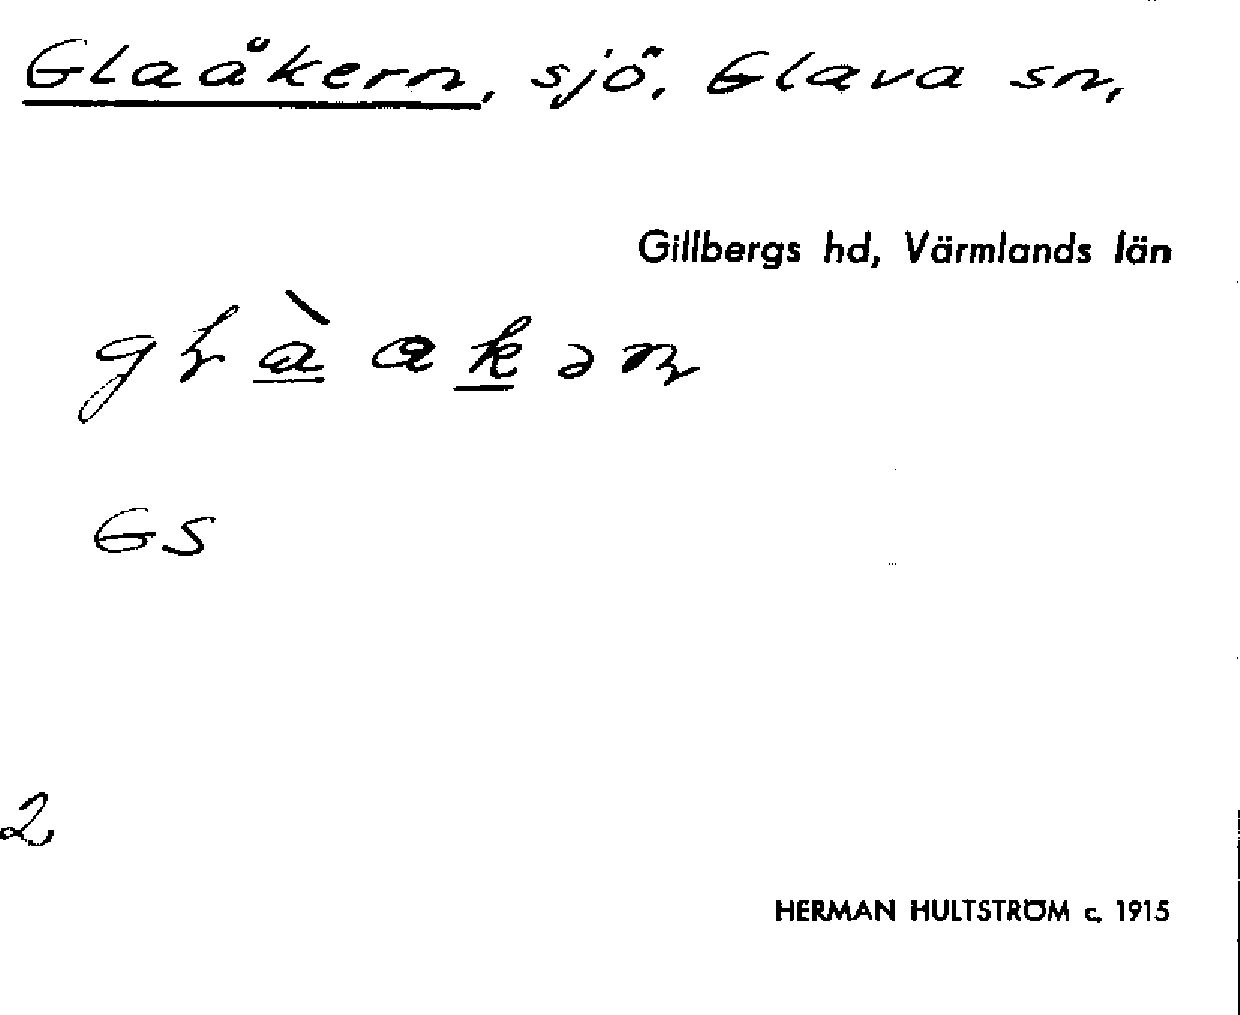 Glaåkern, sjö, Glava sn,
Gillbergs hd, Värmlands län
GS
2
HERMAN HULTSTRÖM c. 1915